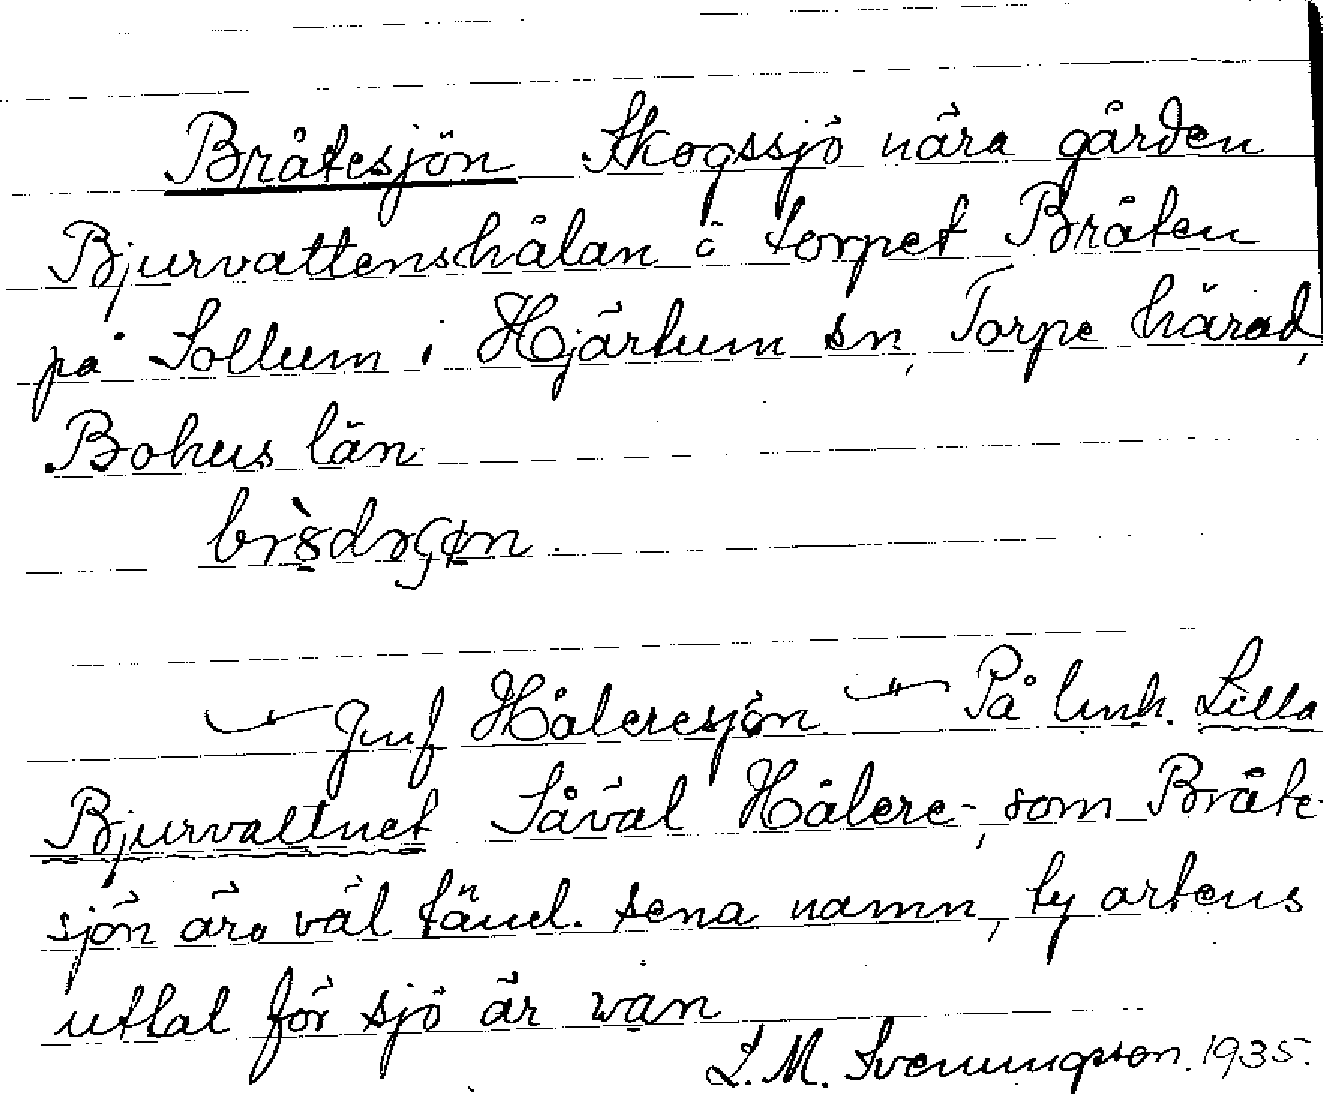 Bråtesjön Skogssjö nära gården
Bjurvattenshålan o torpet Bråten
på Sollum i Hjärtum sn, Torpe härad,
Bohus län
Jmf Håleresjön – " – På lmk. Lilla
Bjurvattnet Såväl Hålere-, som Bråte-
sjön äro väl täml. sena namn, ty ortens
uttal för sjö är
L. M. Svenungsson. 1935.